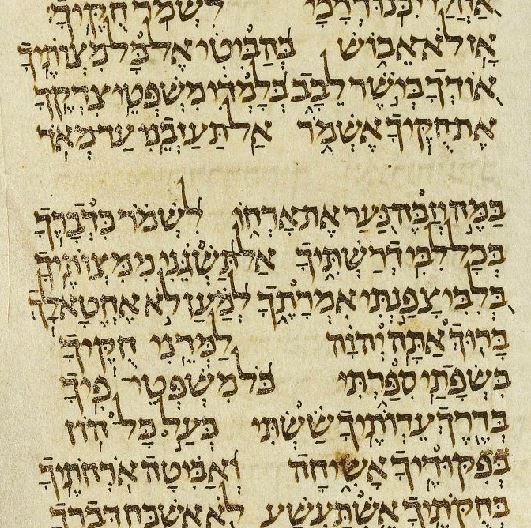 אַחֲלַי יִכֹּנוּ דְרָכָי לִשְׁמֹר חֻקֶּיךָ
אָז לֹא אֵבוֹשׁ בְּהַבִּיטִי אֶל כָּל מִצְוֹתֶיךָ
אוֹדְךָ בְּיֹשֶׁר לֵבָב בְּלָמְדִי מִשְׁפְּטֵי צִדְקֶךָ
אֶת חֻקֶּיךָ אֶשְׁמֹר אַל תַּעַזְבֵנִי עַד מְאֹד
בַּמֶּה יְזַכֶּה נַּעַר אֶת אָרְחוֹ לִשְׁמֹר כִּדְבָרֶךָ
בְּכָל לִבִּי דְרַשְׁתִּיךָ אַל תַּשְׁגֵּנִי מִמִּצְוֹתֶיךָ
בְּלִבִּי צָפַנְתִּי אִמְרָתֶךָ לְמַעַן לֹא אֶחֱטָא לָךְ
בָּרוּךְ אַתָּה יְהוָה לַמְּדֵנִי חֻקֶּיךָ
בִּשְׂפָתַי סִפַּרְתִּי כֹּל מִשְׁפְּטֵי פִיךָ
בְּדֶרֶךְ עֵדְוֹתֶיךָ שַׂשְׂתִּי כְּעַל כָּל הוֹן
בְּפִקּוּדֶיךָ אָשִׂיחָה וְאַבִּיטָה אֹרְחֹתֶיךָ
בְּחֻקֹּתֶיךָ אֶשְׁתַּעֲשָׁע לֹא אֶשְׁכַּח דְּבָרֶךָ